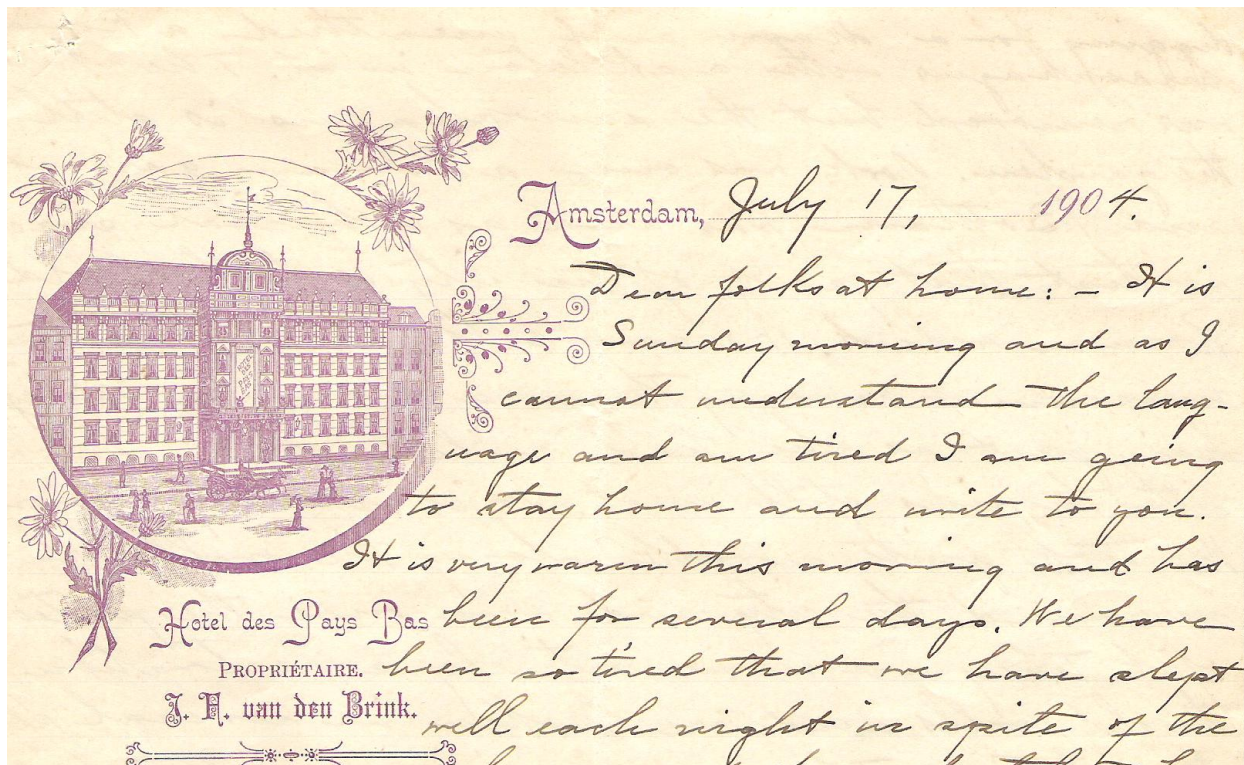 Amsterdam, July 17, 1904.
Dear folks at home: - It is
Sunday morning and as I
cannot understand the lang-
uage and am tired I am going
to stay home and write to you.
It is very warm this morning and has
been for several days. We have
been so tired that we have slept
well each night in spite of the
HOTEL DES PAYS BAS
Hotel des Pays Bas
PROPRIÉTAIRE.
J. H. van den Brink.